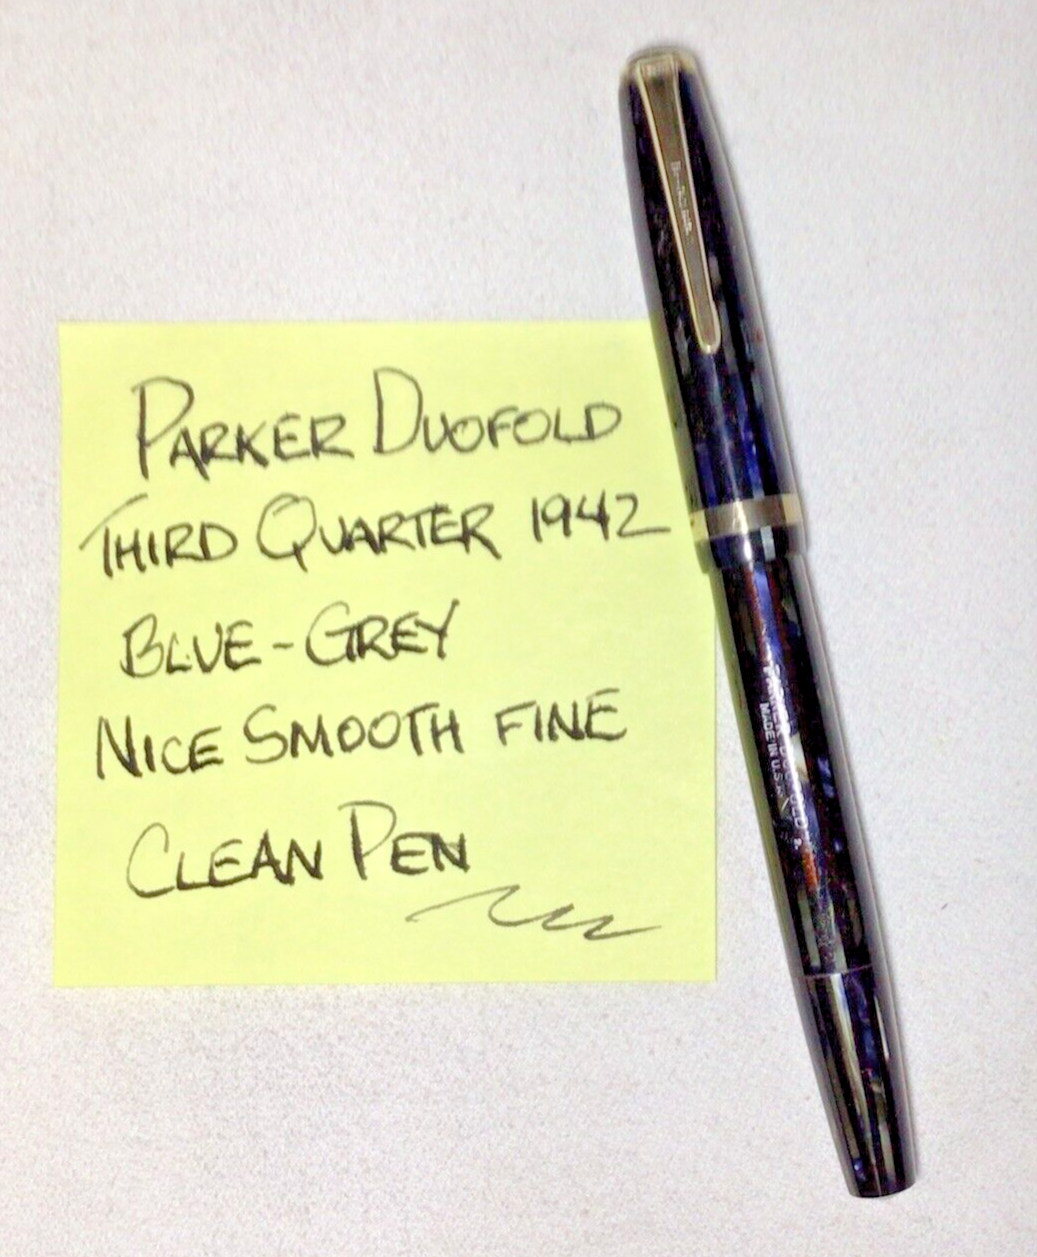 PARKER DUOFOLD
THIRD QUARTER 1942
BLUE-GREY
NICE SMOOTH FINE
CLEAN PEN
PARKER DUOFOLD
MADE IN U.S.A. 2.